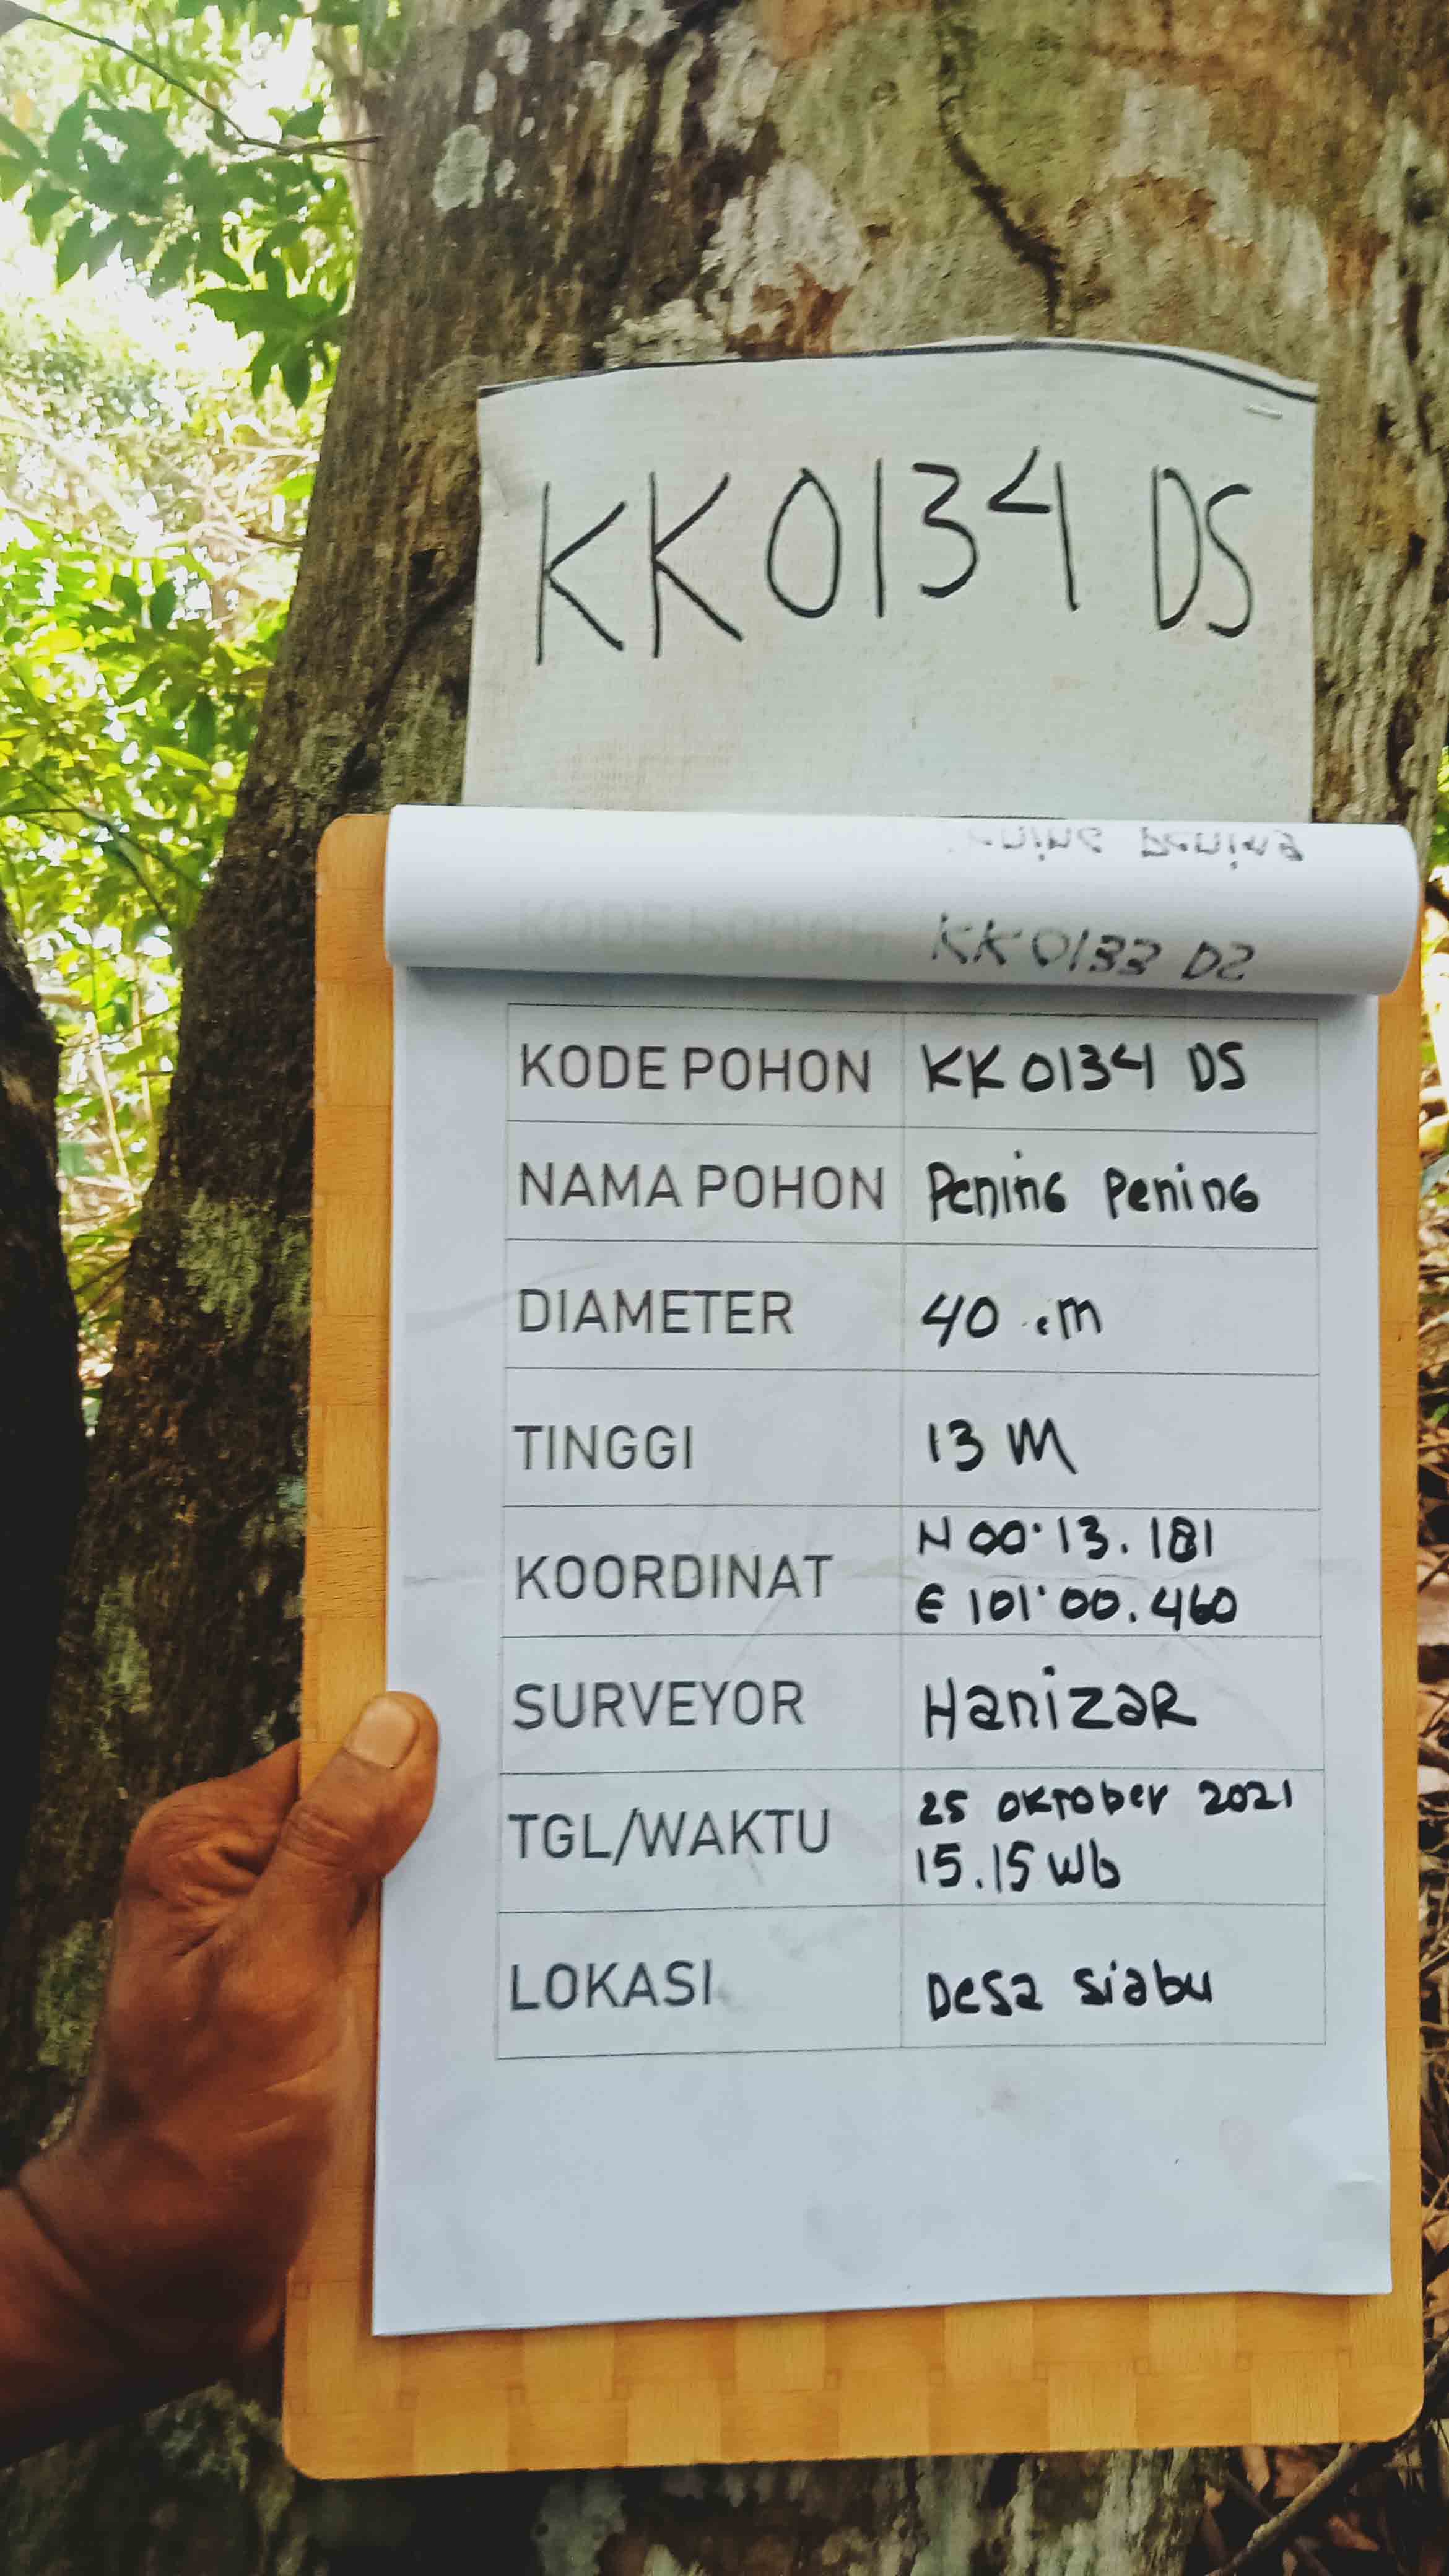 KK0134 DS
KK0133 DS
KODE POHON KK 0134 DS
NAMA POHON Pening Pening
DIAMETER 40 cm
TINGGI 13 M
KOORDINAT N 00° 13. 181
E 101° 00. 460
SURVEYOR HanizaR
TGL/WAKTU 25 oktober 2021
15.15 Wb
LOKASI Desa Siabu